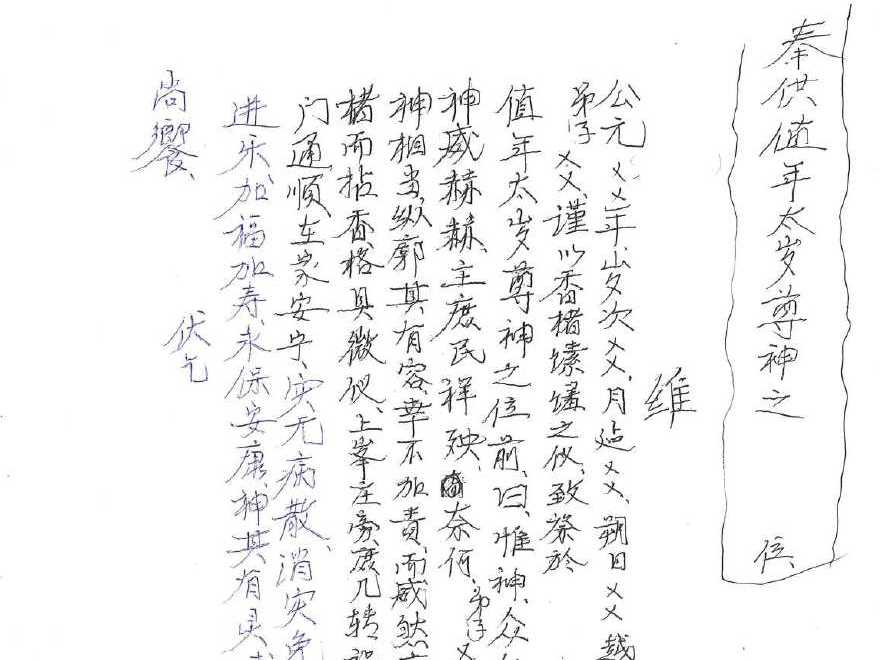 奉供值年太岁尊神之 位
维
公元 ㄨㄨ年岁次ㄨㄨ、月 ㄨㄨ、朔日ㄨㄨ越
弟子ㄨㄨ、谨以香楮馐馔之仪、致祭於
值年太岁尊神之位前、曰、惟神、众
神威赫赫、主庶民祥殃、奈何、弟子ㄨ
神相当、纵 其有容、幸不加责、而威然
楮而拈香、格具微仪、上 庄 、庶几转
门通顺、在家安宁、灾无病散、消灾免
进乐加福加寿、永保安康、神其有灵、
伏乞
尚飨、